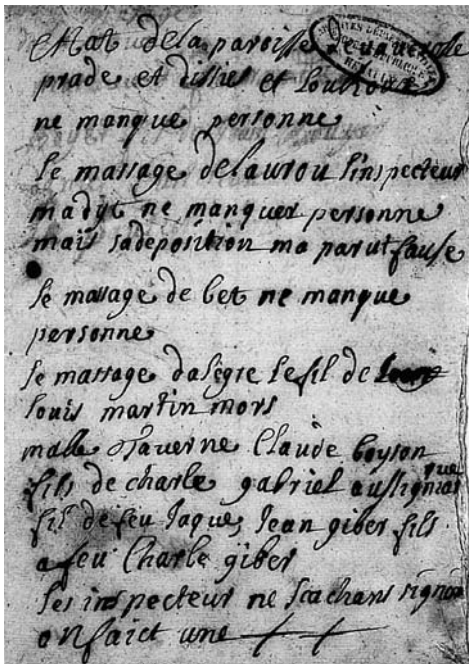 Ettat dela paroisse
prade et dissiés et
ne manque personne
le massage delaurou l'inspecteur
ma dyt ne manquer personne
mais sa deposition ma parut fause
le masage de bet ne manque
personne
le massage dalegre le fil de
louis martin mors
Claude boyson
fils de charle gabriel
fil de feu Jaque, Jean giber fils
a feu Charle giber
les inspecteur ne scachans signer
on faict une